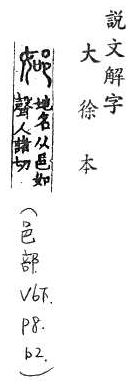 說文解字
大徐本
邚
地名从邑如
聲人諸切
(邑部
V6下.
p8.
b2.)